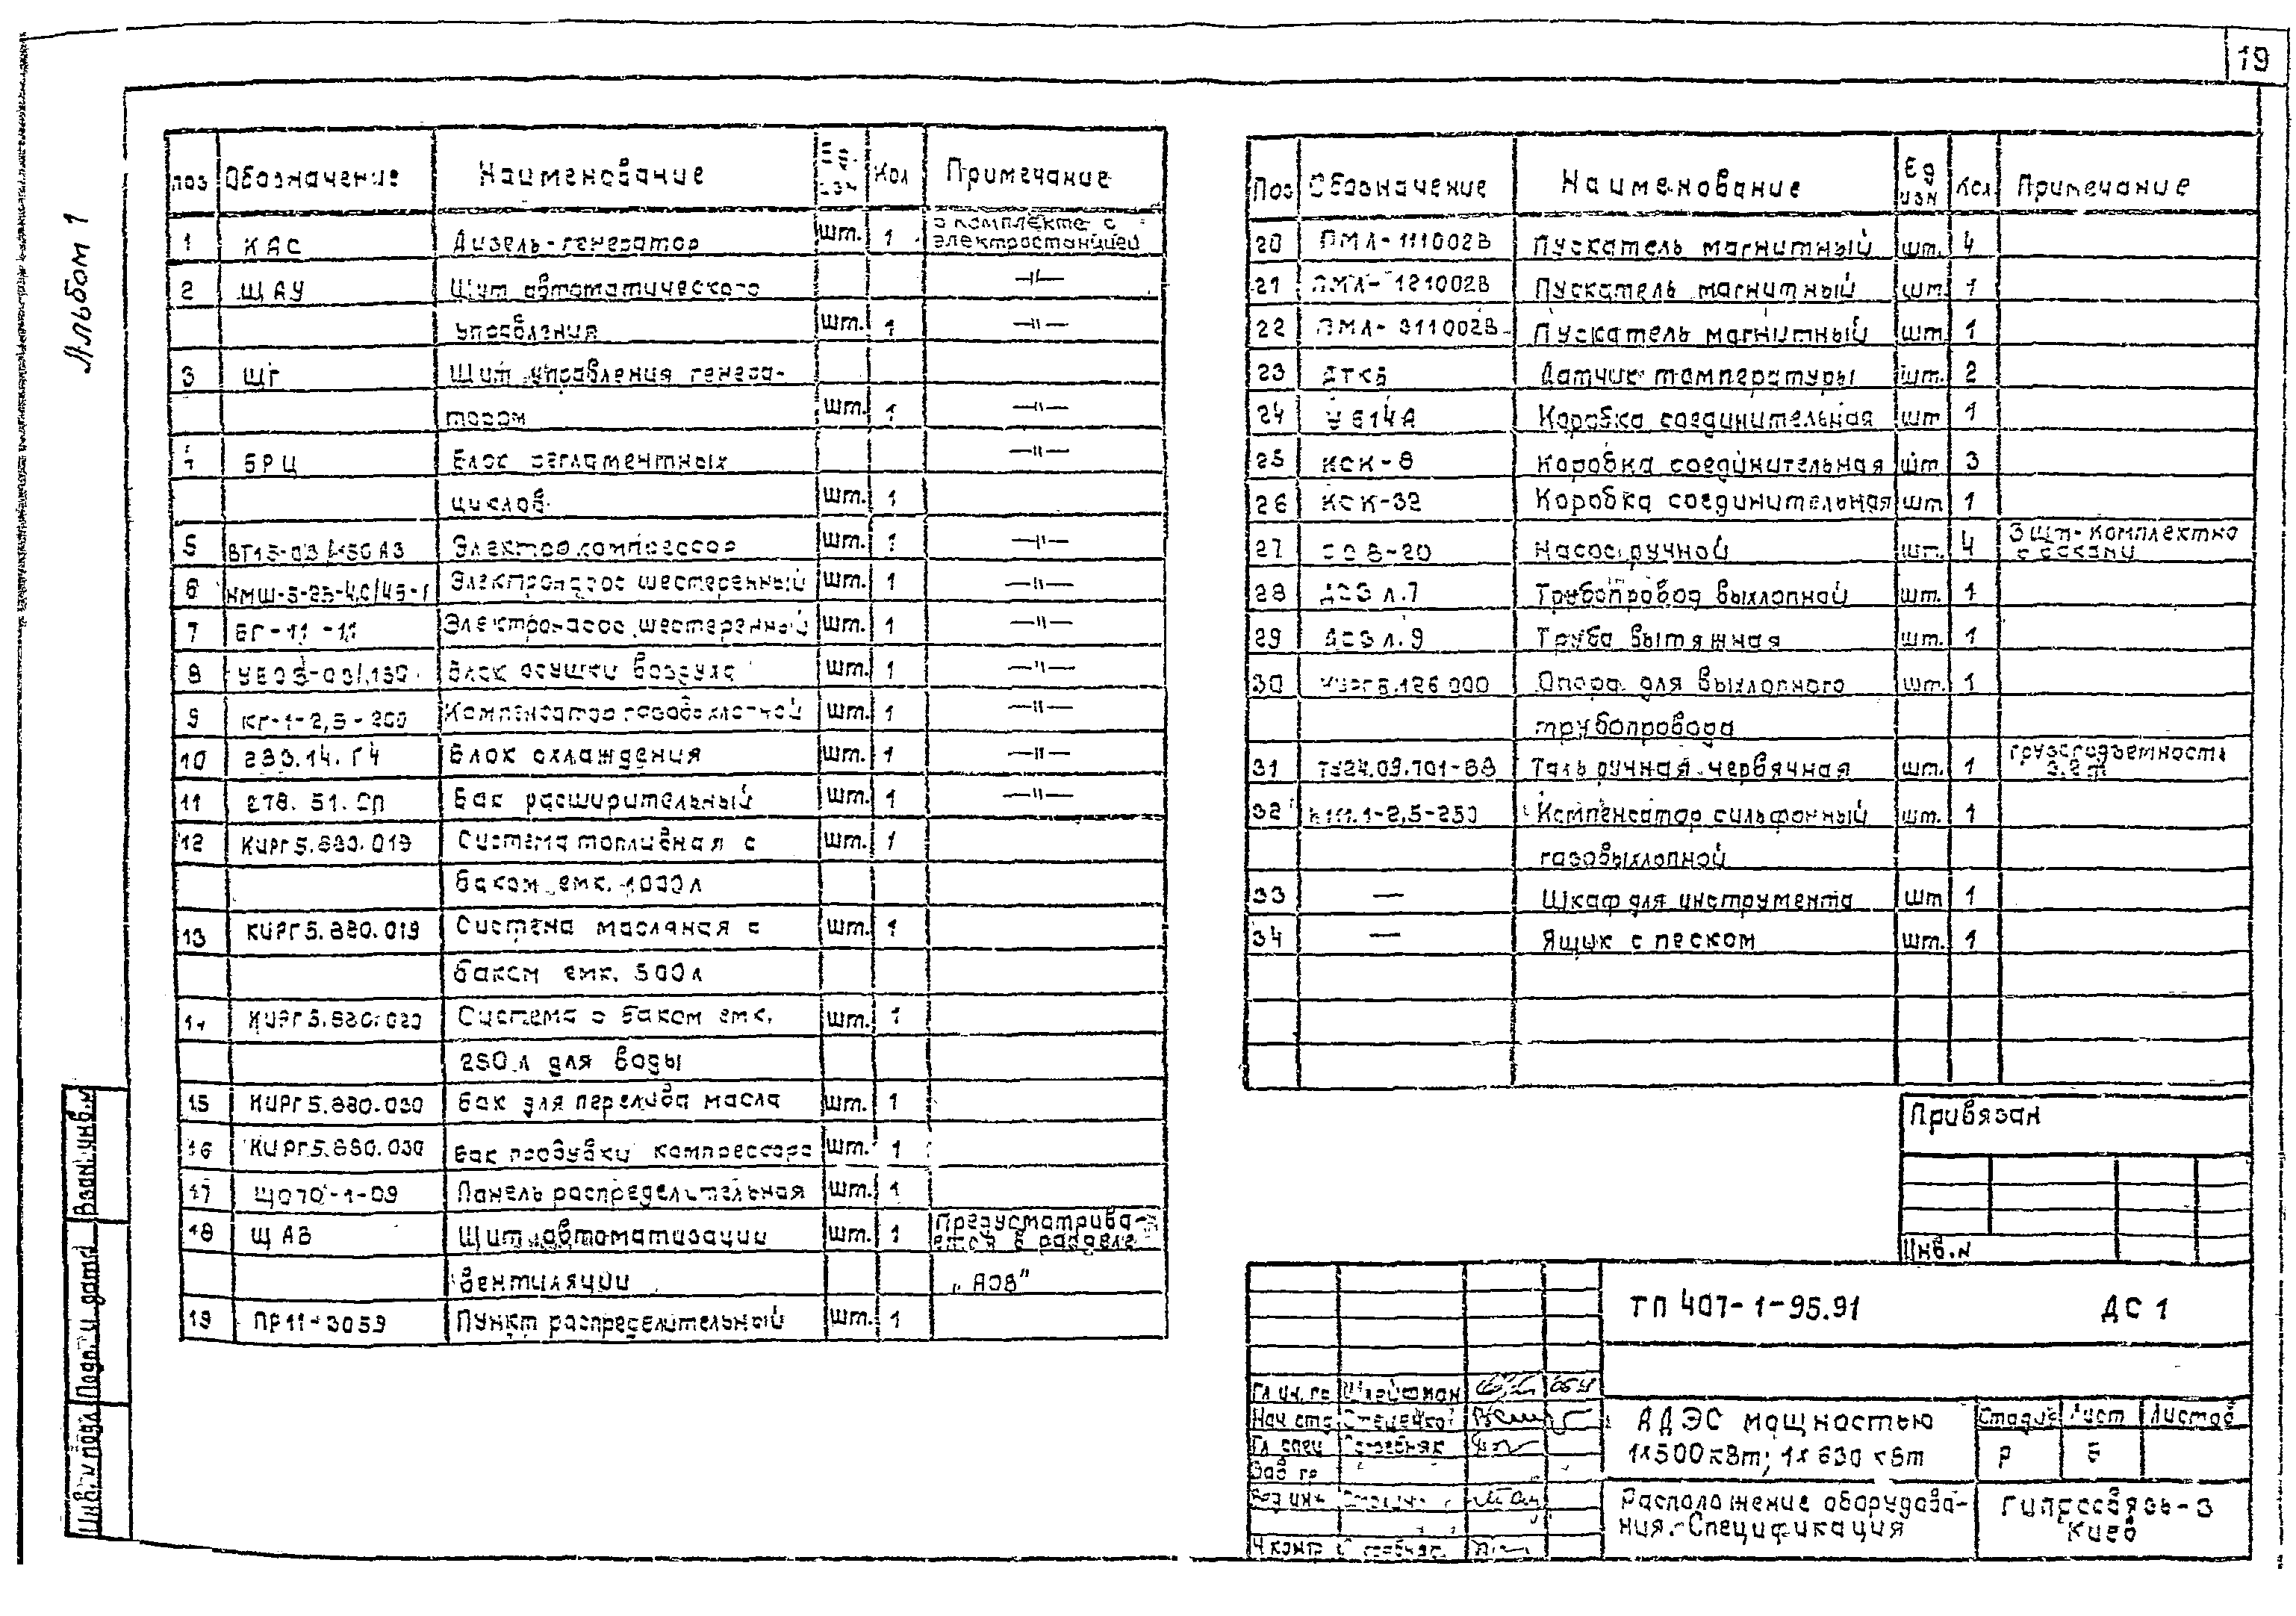 19
Альбом 1
Поз Обозначение Наименование Ед. изм Кол Примечание
1 КАС Дизель-генератор шт. 1 в комплекте с электростанцией
2 ЩАУ Щит автоматического —"—
управления шт. 1 —"—
3 ЩГ Щит управления генера-
тором шт. 1 —"—
4 БРЦ Блок регламентных —"—
циклов шт. 1
5 Электрокомпрессор шт. 1 —"—
6 НМШ-5-25-4,0/45-1 Электронасос шестеренный шт. 1 —"—
7 БГ-11-11 Электронасос шестеренный шт. 1 —"—
8 Блок осушки воздуха шт. 1 —"—
9 КГ-1-2,5-200 Компенсатор газовыхлопной шт. 1 —"—
10 233.14.Г4 Блок охлаждения шт. 1 —"—
11 278.51.СП Бак расширительный шт. 1 —"—
12 КИРГ5.880.019 Система топливная с шт. 1
баком емк. 1000л
13 КИРГ5.880.019 Система масляная с шт. 1
баком емк. 500л
14 КИРГ5.880.020 Система с баком емк. шт. 1
250л для воды
15 КИРГ5.880.030 Бак для перелива масла шт. 1
16 КИРГ5.880.030 Бак продувки компрессора шт. 1
17 ЩО70-1-09 Панель распределительная шт. 1
18 ЩАВ Щит автоматизации шт. 1 Предусматрива-ется в разделе
вентиляции „АОВ"
19 ПР11-3059 Пункт распределительный шт. 1
Поз Обозначение Наименование Ед изм Кол Примечание
20 ПМЛ-111002В Пускатель магнитный шт. 4
21 ПМЛ-121002В Пускатель магнитный шт 1
22 ПМЛ-311002В Пускатель магнитный шт 1
23 ДТКБ Датчик температуры шт. 2
24 У614А Коробка соединительная шт 1
25 КСК-8 Коробка соединительная шт 3
26 КСК-32 Коробка соединительная шт 1
27 Насос ручной шт. 4 3 шт-комплектно с баками
28 ДСЭ л.7 Трубопровод выхлопной шт. 1
29 ДСЭ л.9 Труба вытяжная шт. 1
30 КИРГ5.126.000 Опора для выхлопного шт. 1
трубопровода
31 ТУ24.09.701-88 Таль ручная червячная шт. 1 грузоподъемность
32 Компенсатор сильфонный шт. 1
газовыхлопной
33 — Шкаф для инструмента шт 1
34 — Ящик с песком шт. 1
Привязан
Инв.N
ТП 407-1-95.91 ДС1
Гл.ин.пр Шлейфман
Нач отд
Гл спец
Зав гр
Вед инж
Н контр
АДЭС мощностью
1х500кВт; 1х630 кВт
Стадия Лист Листов
Р 5
Расположение оборудова-
ния. Спецификация
Гипросвязь-3
Киев
Взам.инв.N
Подп. и дата
Инв.N подл